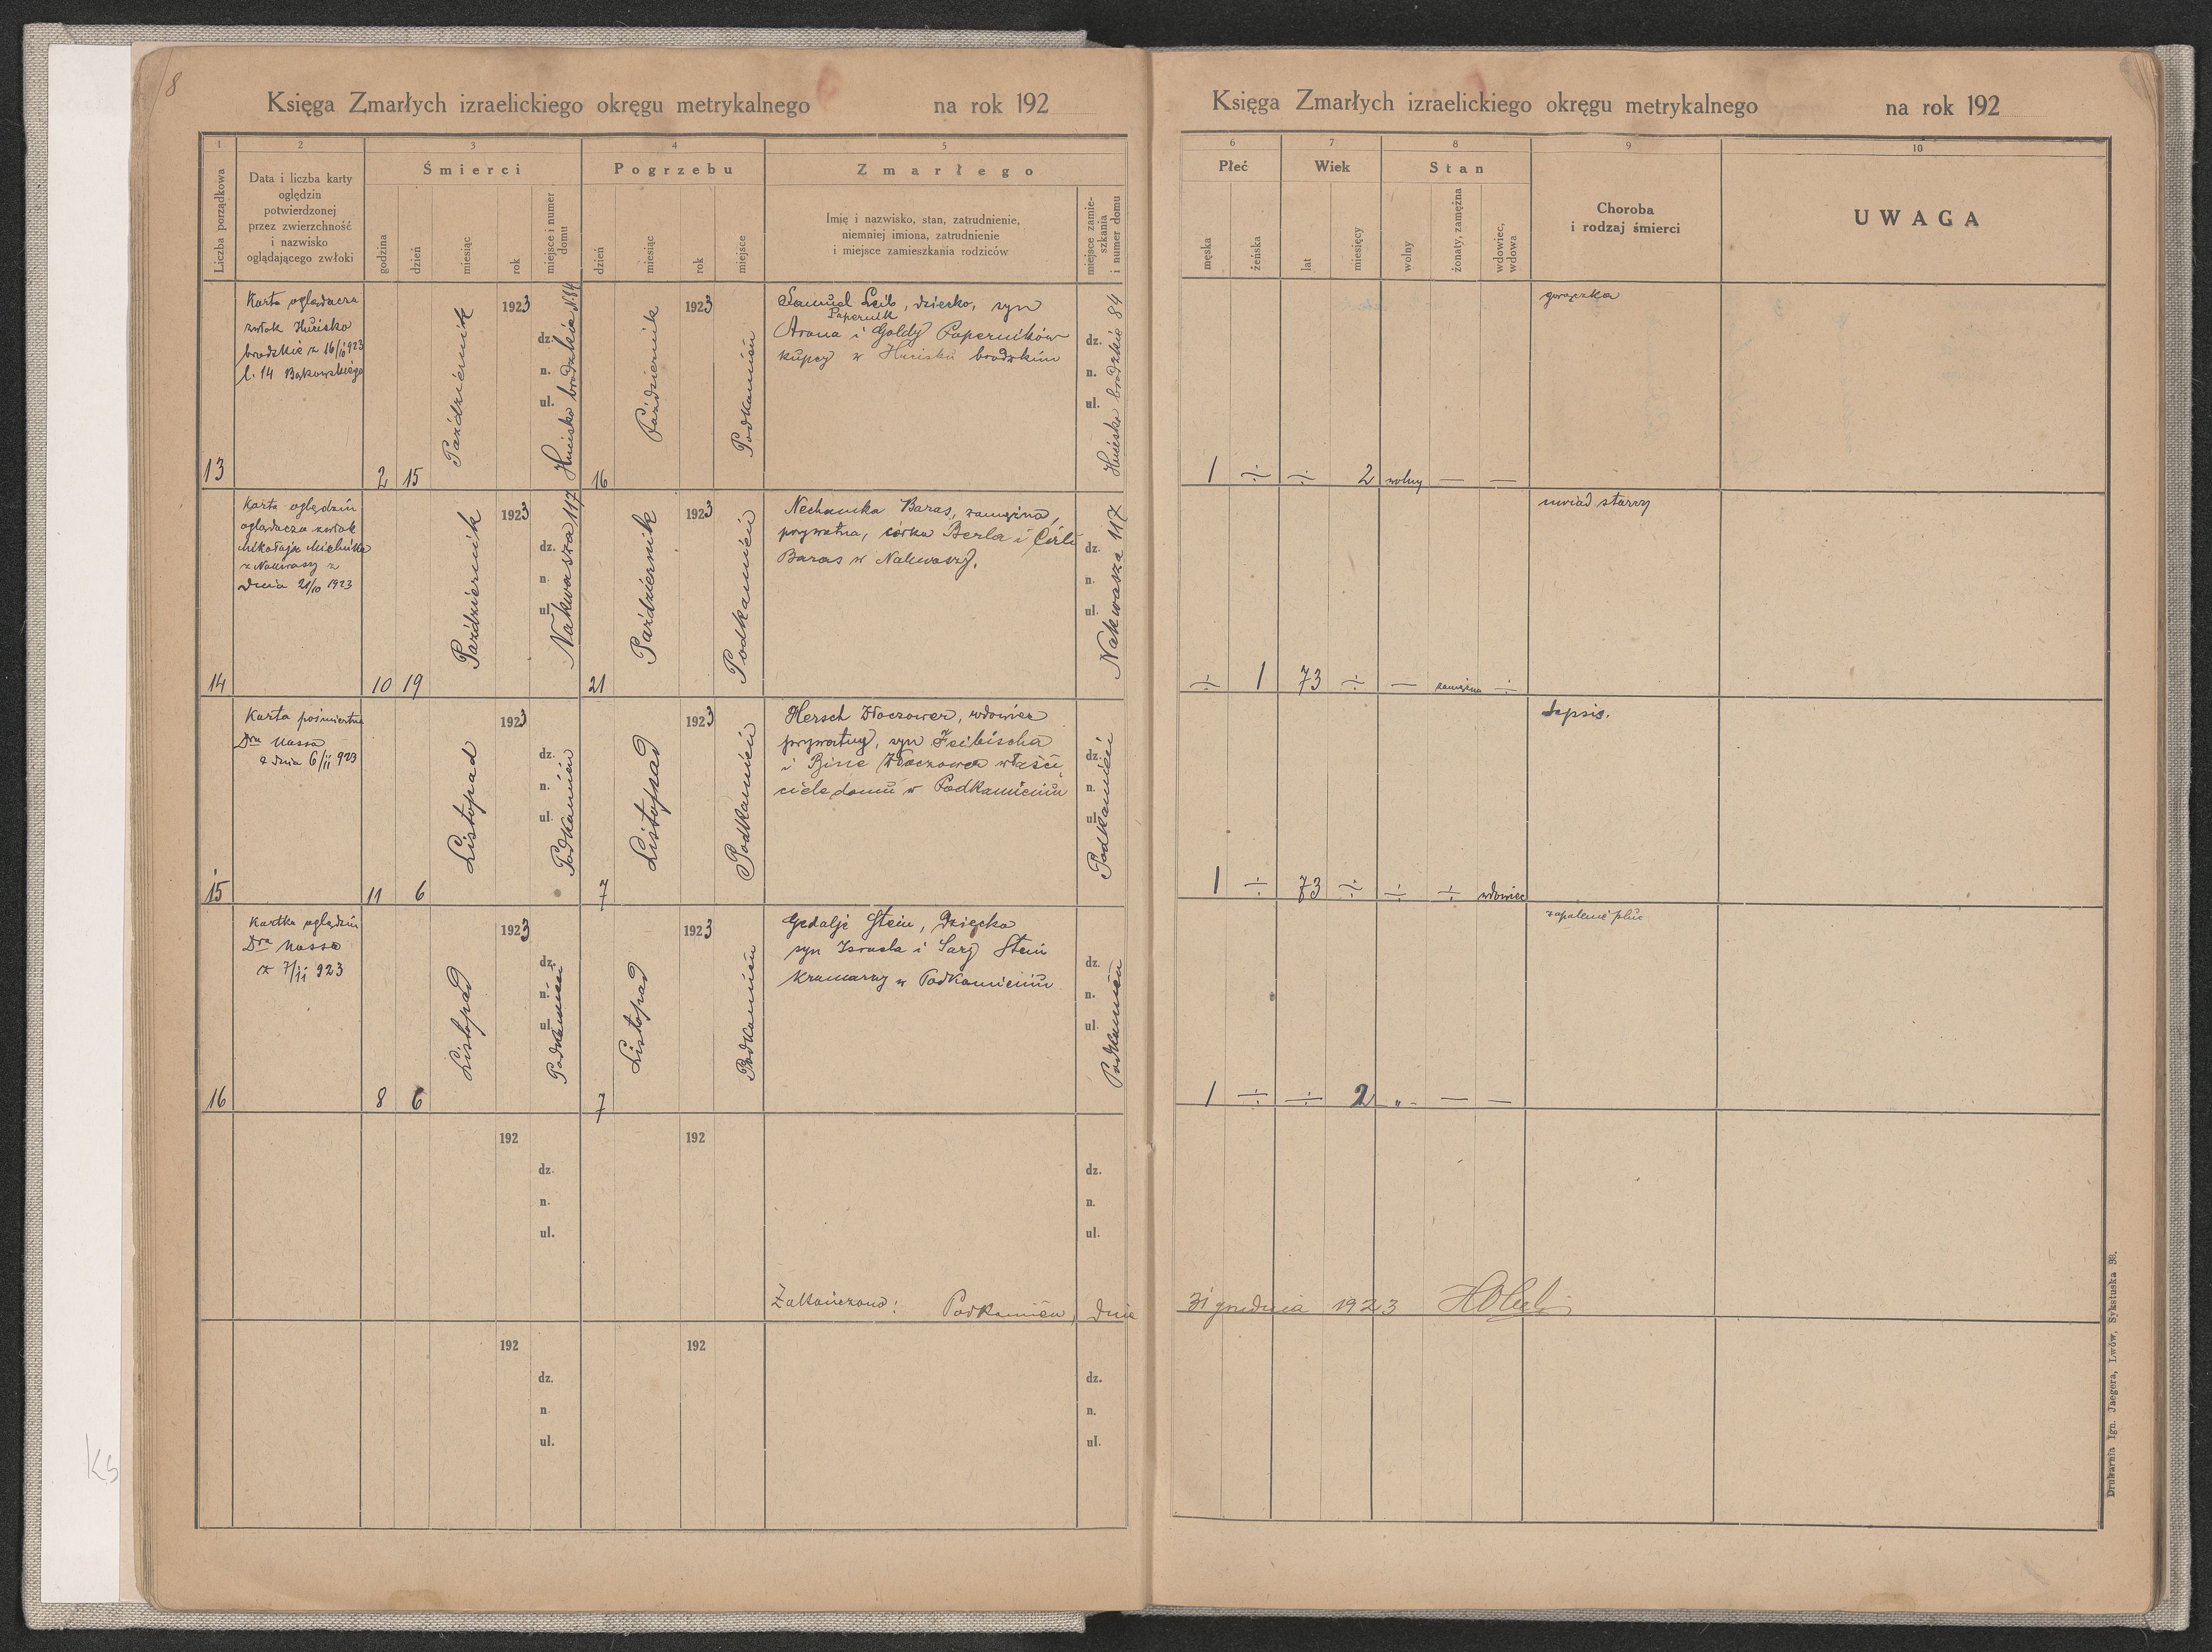 8
Księga Zmarłych izraelickiego okręgu metrykalnego na rok 192
1 2 3 4 5
Liczba porządkowa
Data i liczba karty
oględzin
potwierdzonej
przez zwierzchność
i nazwisko
oglądającego zwłoki
Śmierci
godzina
dzień
miesiąc
rok
miejsce i numer
domu
Pogrzebu
dzień
miesiąc
rok
miejsce
Zmarłego
Imię i nazwisko, stan, zatrudnienie,
niemniej imiona, zatrudnienie
i miejsce zamieszkania rodziców
miejsce zamie-
szkania
i numer domu
13
Karta oglądacza
zwłok Hucisko
brodzkie z 16/10 923
l. 14 Bąkowskiego
2 15
Październik
1923
dz.
n.
ul.
Hucisko brodzkie N. 84
16
Październik
1923
Podkamień
Samuel Leib, dziecko, syn
Papernik
Arona i Goldy Paperników
kupcy w Hucisku brodzkim
dz.
n.
ul.
Hucisko brodzkie 84
14
Karta oględzin
oglądacza zwłok
Mikołaja Mielnika
z Nakwaszy z
dnia 21/10 1923
10 19
Październik
1923
dz.
n.
ul.
Nakwasza 117
21
Październik
1923
Podkamień
Nechamka Baras, zamężna,
prywatna, córka Berla i Cirli
Baras w Nakwaszy.
dz.
n.
ul.
Nakwasza 117
15
Karta pośmiertna
Dra Nassa
z dnia 6/11 923
11 6
Listopad
1923
dz.
n.
ul.
Podkamień
7
Listopad
1923
Podkamień
Hersch Złoczower, wdowiec
prywatny, syn Feibischa
i Bine Złoczower właści
ciele domu w Podkamieniu
dz.
n.
ul.
Podkamień
16
Kartka oględzin
Dra Nassa
z 7/11 923
8 6
Listopad
1923
dz.
n.
ul.
Podkamień
7
Listopad
1923
Podkamień
Gedalje Stein, Dziecko
syn Israela i Sary Stein
Kramarzy w Podkamieniu
dz.
n.
ul.
Podkamień
192
dz.
n.
ul.
192
dz.
n.
ul.
Zakończono: Podkamień, dnia
192
dz.
n.
ul.
192
dz.
n.
ul.
Księga Zmarłych izraelickiego okręgu metrykalnego na rok 192
6 7 8 9 10
Płeć
męska
żeńska
Wiek
lat
miesięcy
Stan
wolny
żonaty, zamężna
wdowiec,
wdowa
Choroba
i rodzaj śmierci
UWAGA
gorączka
1 ÷ ÷ 2 wolny — —
uwiąd starczy
÷ 1 73 ÷ — zamężna ÷
Sepsis.
1 ÷ 73 ÷ ÷ ÷ wdowiec
zapalenie płuc
1 ÷ ÷ 2 „ - — —
31 grudnia 1923
Drukarnia Ign. Jaegera, Lwów, Sykstuska 33.
Ks